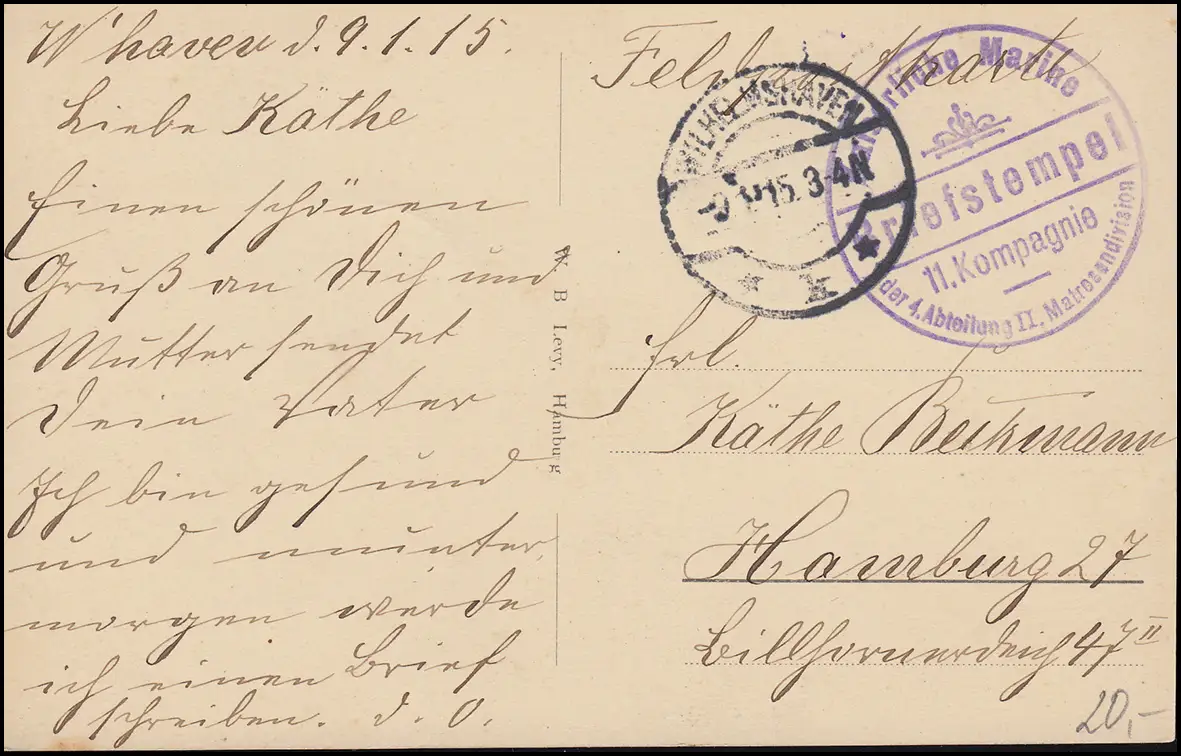 W'haven d. 9.1.15.
Liebe Käthe
Einen schönen
Gruß an Dich und
Mutter sendet
Dein Vater
Ich bin gesund
und munter,
morgen werde
ich einen Brief
schreiben. d. O.
W. B. Levy, Hamburg
Feldpostkarte
WILHELMSHAVEN
15. 3-4N
Kaiserliche Marine
Briefstempel
11. Kompagnie
der 4. Abteilung II. Matrosendivision
Frl.
Käthe Beckmann
Hamburg 27
Billhornerdeich 47 II
20,-